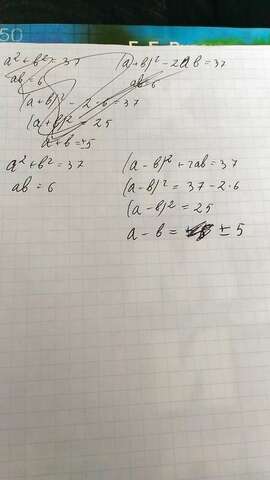 50
a² + b² = 37 (a+b)² - 2ab = 37
ab = 6 ab = 6
(a+b)² - 2·6 = 37
(a+b)² = 25
a+b = ±5
a² + b² = 37 (a-b)² + 2ab = 37
ab = 6 (a-b)² = 37 - 2·6
(a-b)² = 25
a - b = ±5